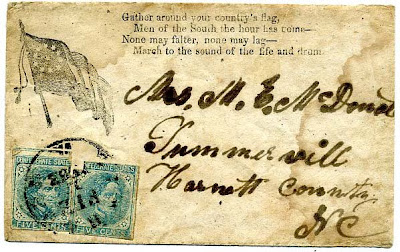 Gather around your country's flag,
Men of the South, the hour has come—
None may falter, none may lag—
March to the sound of the fife and drum.
Mrs. M. E. McDonald
Summervill
Harnett County
NC
CONFEDERATE STATES CONFEDERATE STATES
FIVE CENTS FIVE CENTS